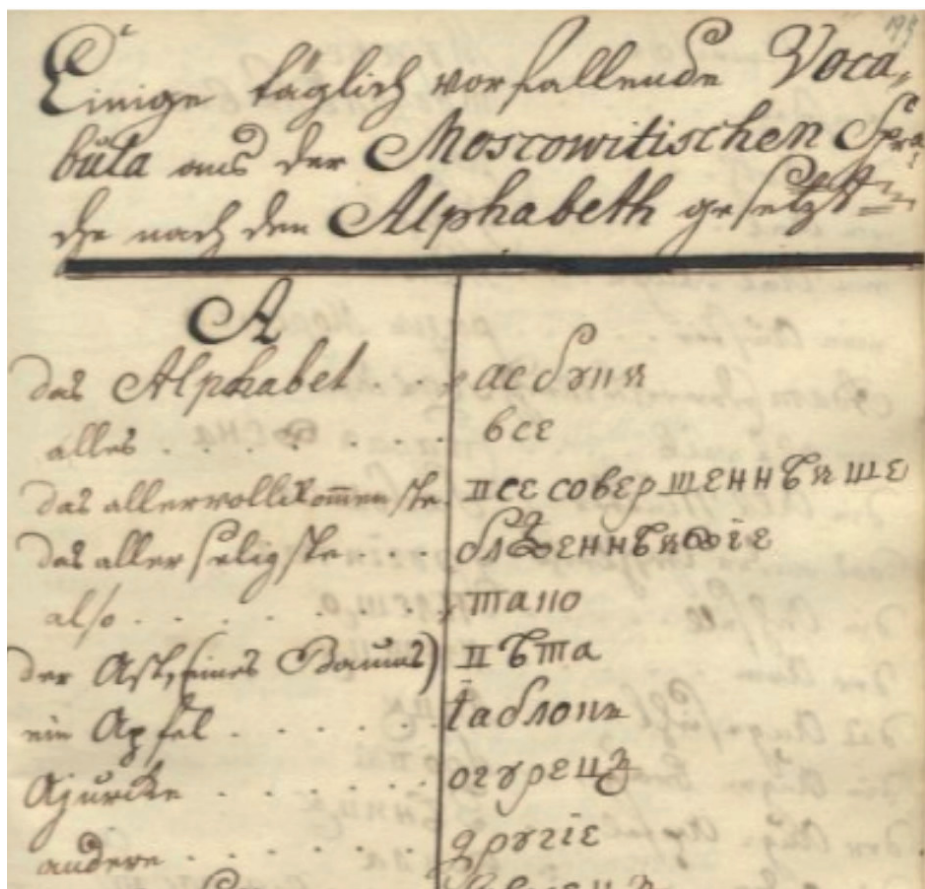 193
Einige täglich vorfallende Voca„
bula aus der Moscowitischen Spra„
che nach den Alphabeth gesetzt
A
das Alphabet . . . асбꙋки
alles . . . . . . . . все
das allervollkom̅enste. все совершеннѣише
das allerseligste . . . блаженнѣишіе
also . . . . . . . . тако
der Ast, (eines Baums) вѣта
ein Apfel . . . . . . ꙗблоки
Ajurcke . . . . . . . огꙋрецъ
andere . . . . . . . дрꙋгіе